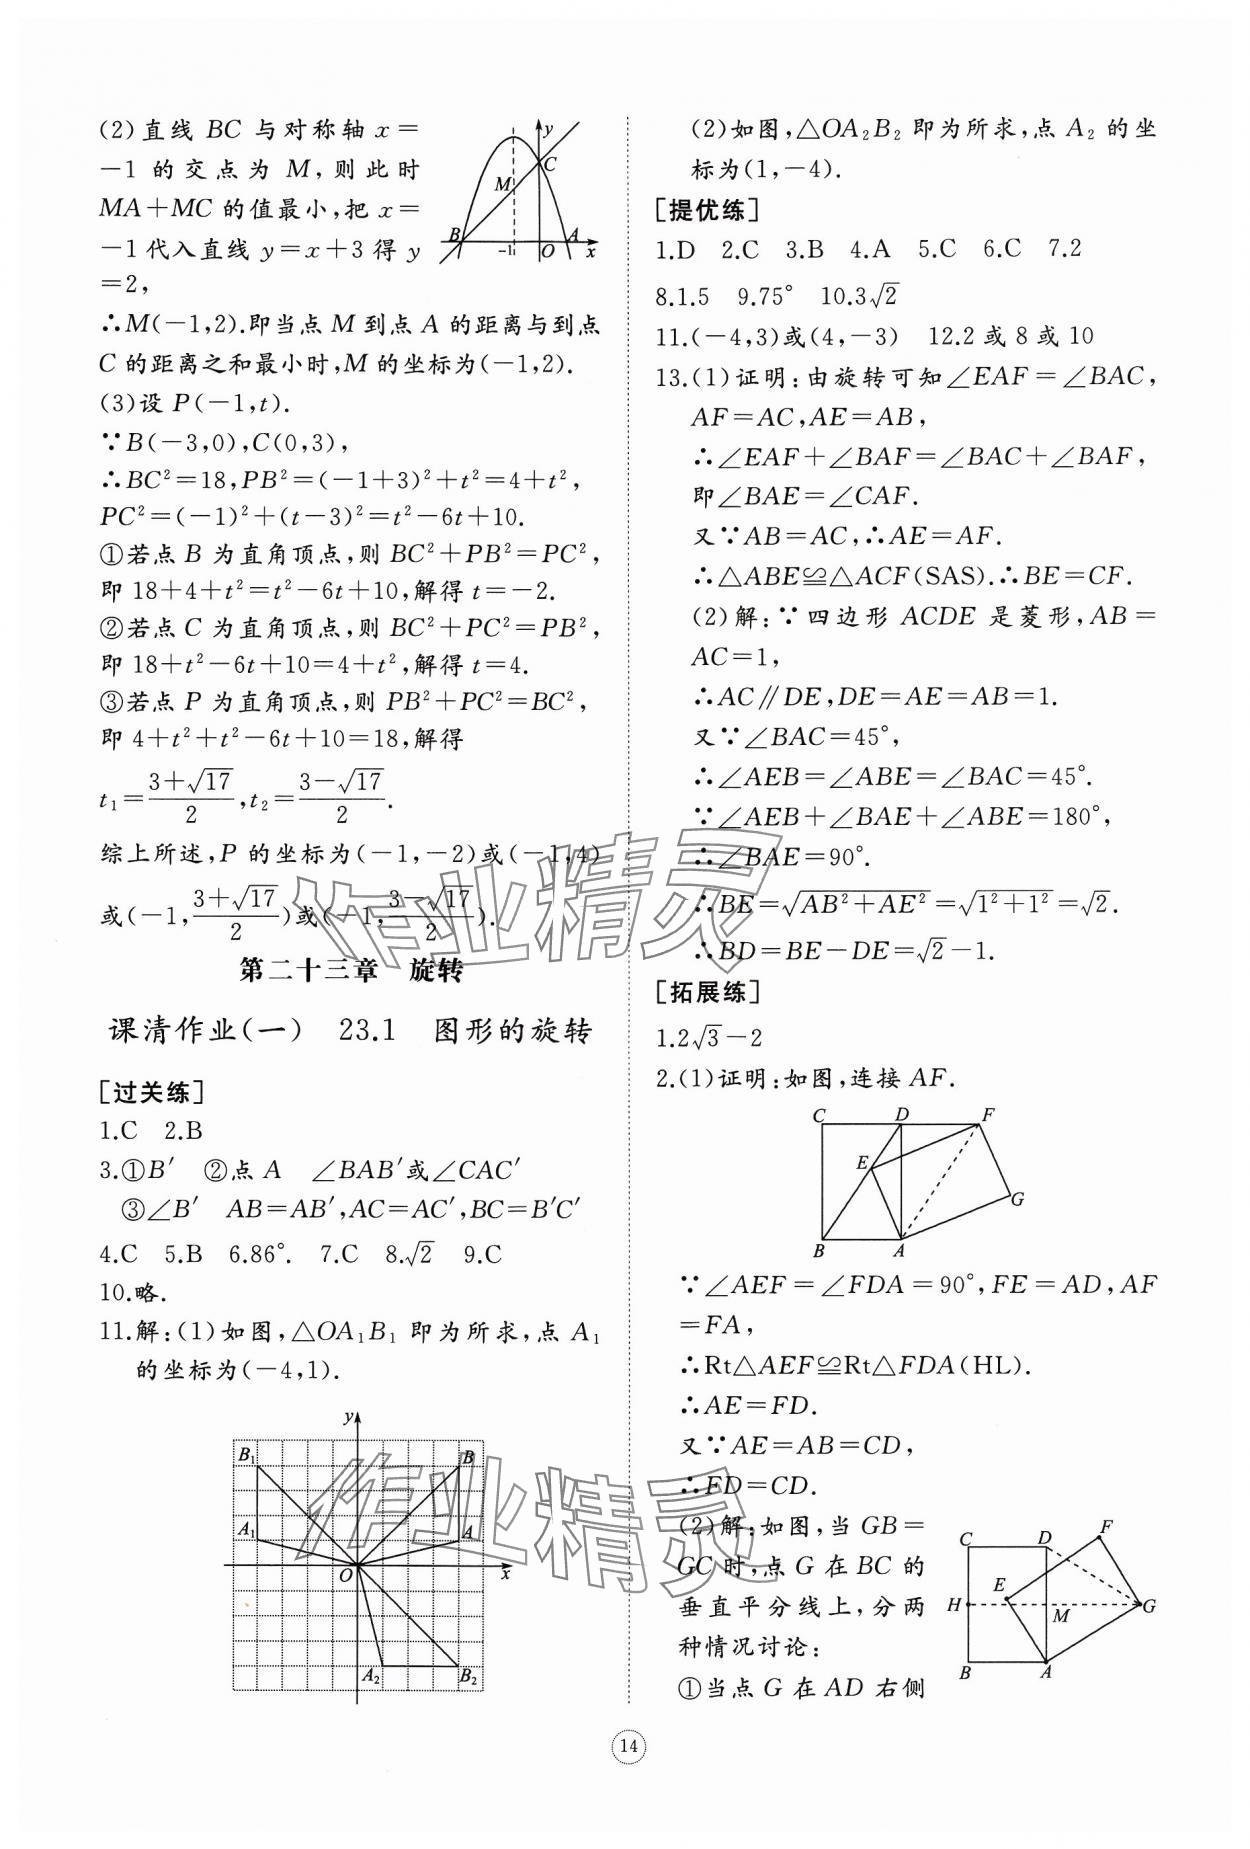 (2)直线 BC 与对称轴 x=
-1 的交点为 M,则此时
MA+MC 的值最小,把 x=
-1代入直线 y=x+3 得 y
=2,
y
C
M
B
-1
O
A
x
∴M(-1,2).即当点 M 到点 A 的距离与到点
C 的距离之和最小时,M 的坐标为(-1,2).
(3)设 P(-1,t).
∵B(-3,0),C(0,3),
∴BC²=18,PB²=(-1+3)²+t²=4+t²,
PC²=(-1)²+(t-3)²=t²-6t+10.
①若点 B 为直角顶点,则 BC²+PB²=PC²,
即 18+4+t²=t²-6t+10,解得 t=-2.
②若点 C 为直角顶点,则 BC²+PC²=PB²,
即 18+t²-6t+10=4+t²,解得 t=4.
③若点 P 为直角顶点,则 PB²+PC²=BC²,
即 4+t²+t²-6t+10=18,解得
t₁=(3+√17)/2,t₂=(3-√17)/2.
综上所述,P 的坐标为(-1,-2)或(-1,4)
或(-1,(3+√17)/2)或(-1,(3-√17)/2).
第二十三章 旋转
课清作业(一) 23.1 图形的旋转
[过关练]
1.C 2.B
3.①B′ ②点 A ∠BAB′或∠CAC′
③∠B′ AB=AB′,AC=AC′,BC=B′C′
4.C 5.B 6.86°. 7.C 8.√2 9.C
10.略.
11.解:(1)如图,△OA₁B₁ 即为所求,点 A₁
的坐标为(-4,1).
y
B₁
B
A₁
A
O
x
A₂
B₂
(2)如图,△OA₂B₂ 即为所求,点 A₂ 的坐
标为(1,-4).
[提优练]
1.D 2.C 3.B 4.A 5.C 6.C 7.2
8.1.5 9.75° 10.3√2
11.(-4,3)或(4,-3) 12.2 或 8 或 10
13.(1)证明:由旋转可知∠EAF=∠BAC,
AF=AC,AE=AB,
∴∠EAF+∠BAF=∠BAC+∠BAF,
即∠BAE=∠CAF.
又∵AB=AC,∴AE=AF.
∴△ABE≌△ACF(SAS).∴BE=CF.
(2)解:∵四边形 ACDE 是菱形,AB=
AC=1,
∴AC∥DE,DE=AE=AB=1.
又∵∠BAC=45°,
∴∠AEB=∠ABE=∠BAC=45°.
∵∠AEB+∠BAE+∠ABE=180°,
∴∠BAE=90°.
∴BE=√(AB²+AE²)=√(1²+1²)=√2.
∴BD=BE-DE=√2-1.
[拓展练]
1.2√3-2
2.(1)证明:如图,连接 AF.
C
D
F
E
G
B
A
∵∠AEF=∠FDA=90°,FE=AD,AF
=FA,
∴Rt△AEF≌Rt△FDA(HL).
∴AE=FD.
又∵AE=AB=CD,
∴FD=CD.
(2)解:如图,当 GB=
GC 时,点 G 在 BC 的
垂直平分线上,分两
种情况讨论:
①当点 G 在 AD 右侧
C
D
F
E
H
M
G
B
A
14
作业精灵
作业精灵